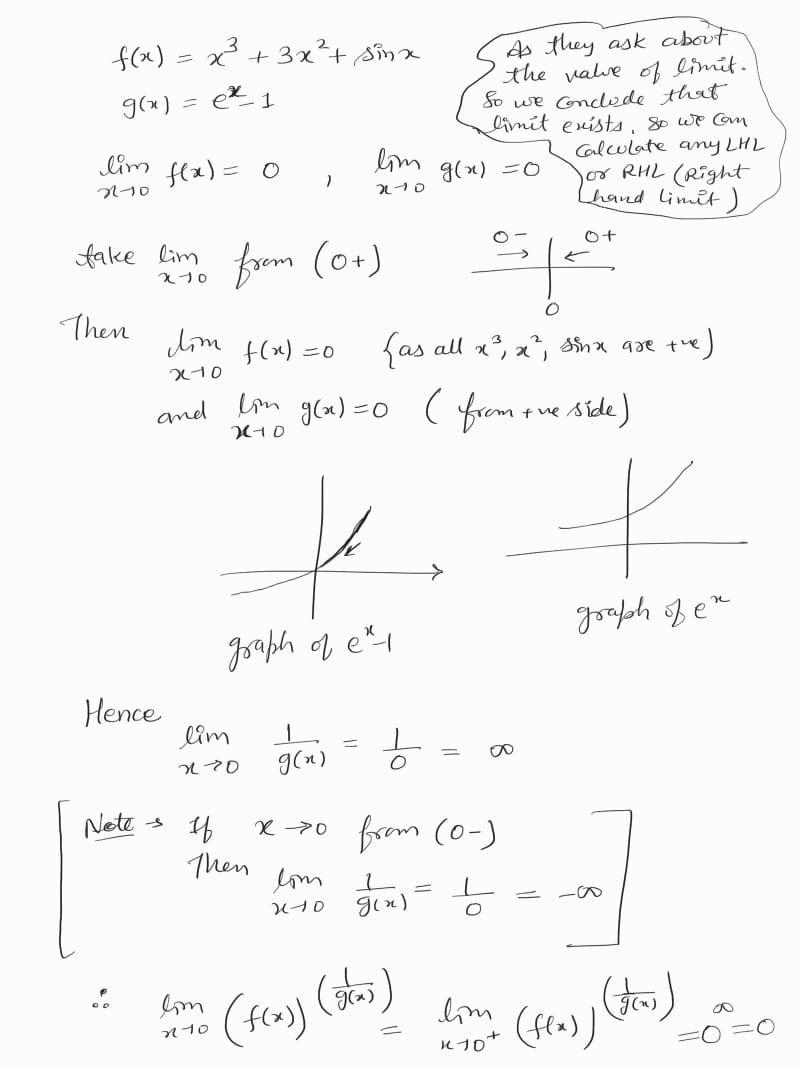 f(x) = x³ + 3x² + sinx
g(x) = eˣ-1
As they ask about
the value of limit.
So we conclude that
limit exists, so we can
calculate any LHL
or RHL (Right
hand limit)
lim x→0 f(x) = 0 , lim x→0 g(x) = 0
take lim x→0 from (0+)
0- 0+
→ ←
0
Then lim x→0 f(x) = 0 {as all x³, x², sinx are +ve)
and lim x→0 g(x) = 0 (from +ve side)
graph of eˣ-1
graph of eˣ
Hence
lim x→0 1/g(x) = 1/0 = ∞
[Note → If x→0 from (0-)
Then lim x→0 1/g(x) = 1/0 = -∞]
∴ lim x→0 (f(x))^(1/g(x)) = lim x→0⁺ (f(x))^(1/g(x)) = 0^∞ = 0